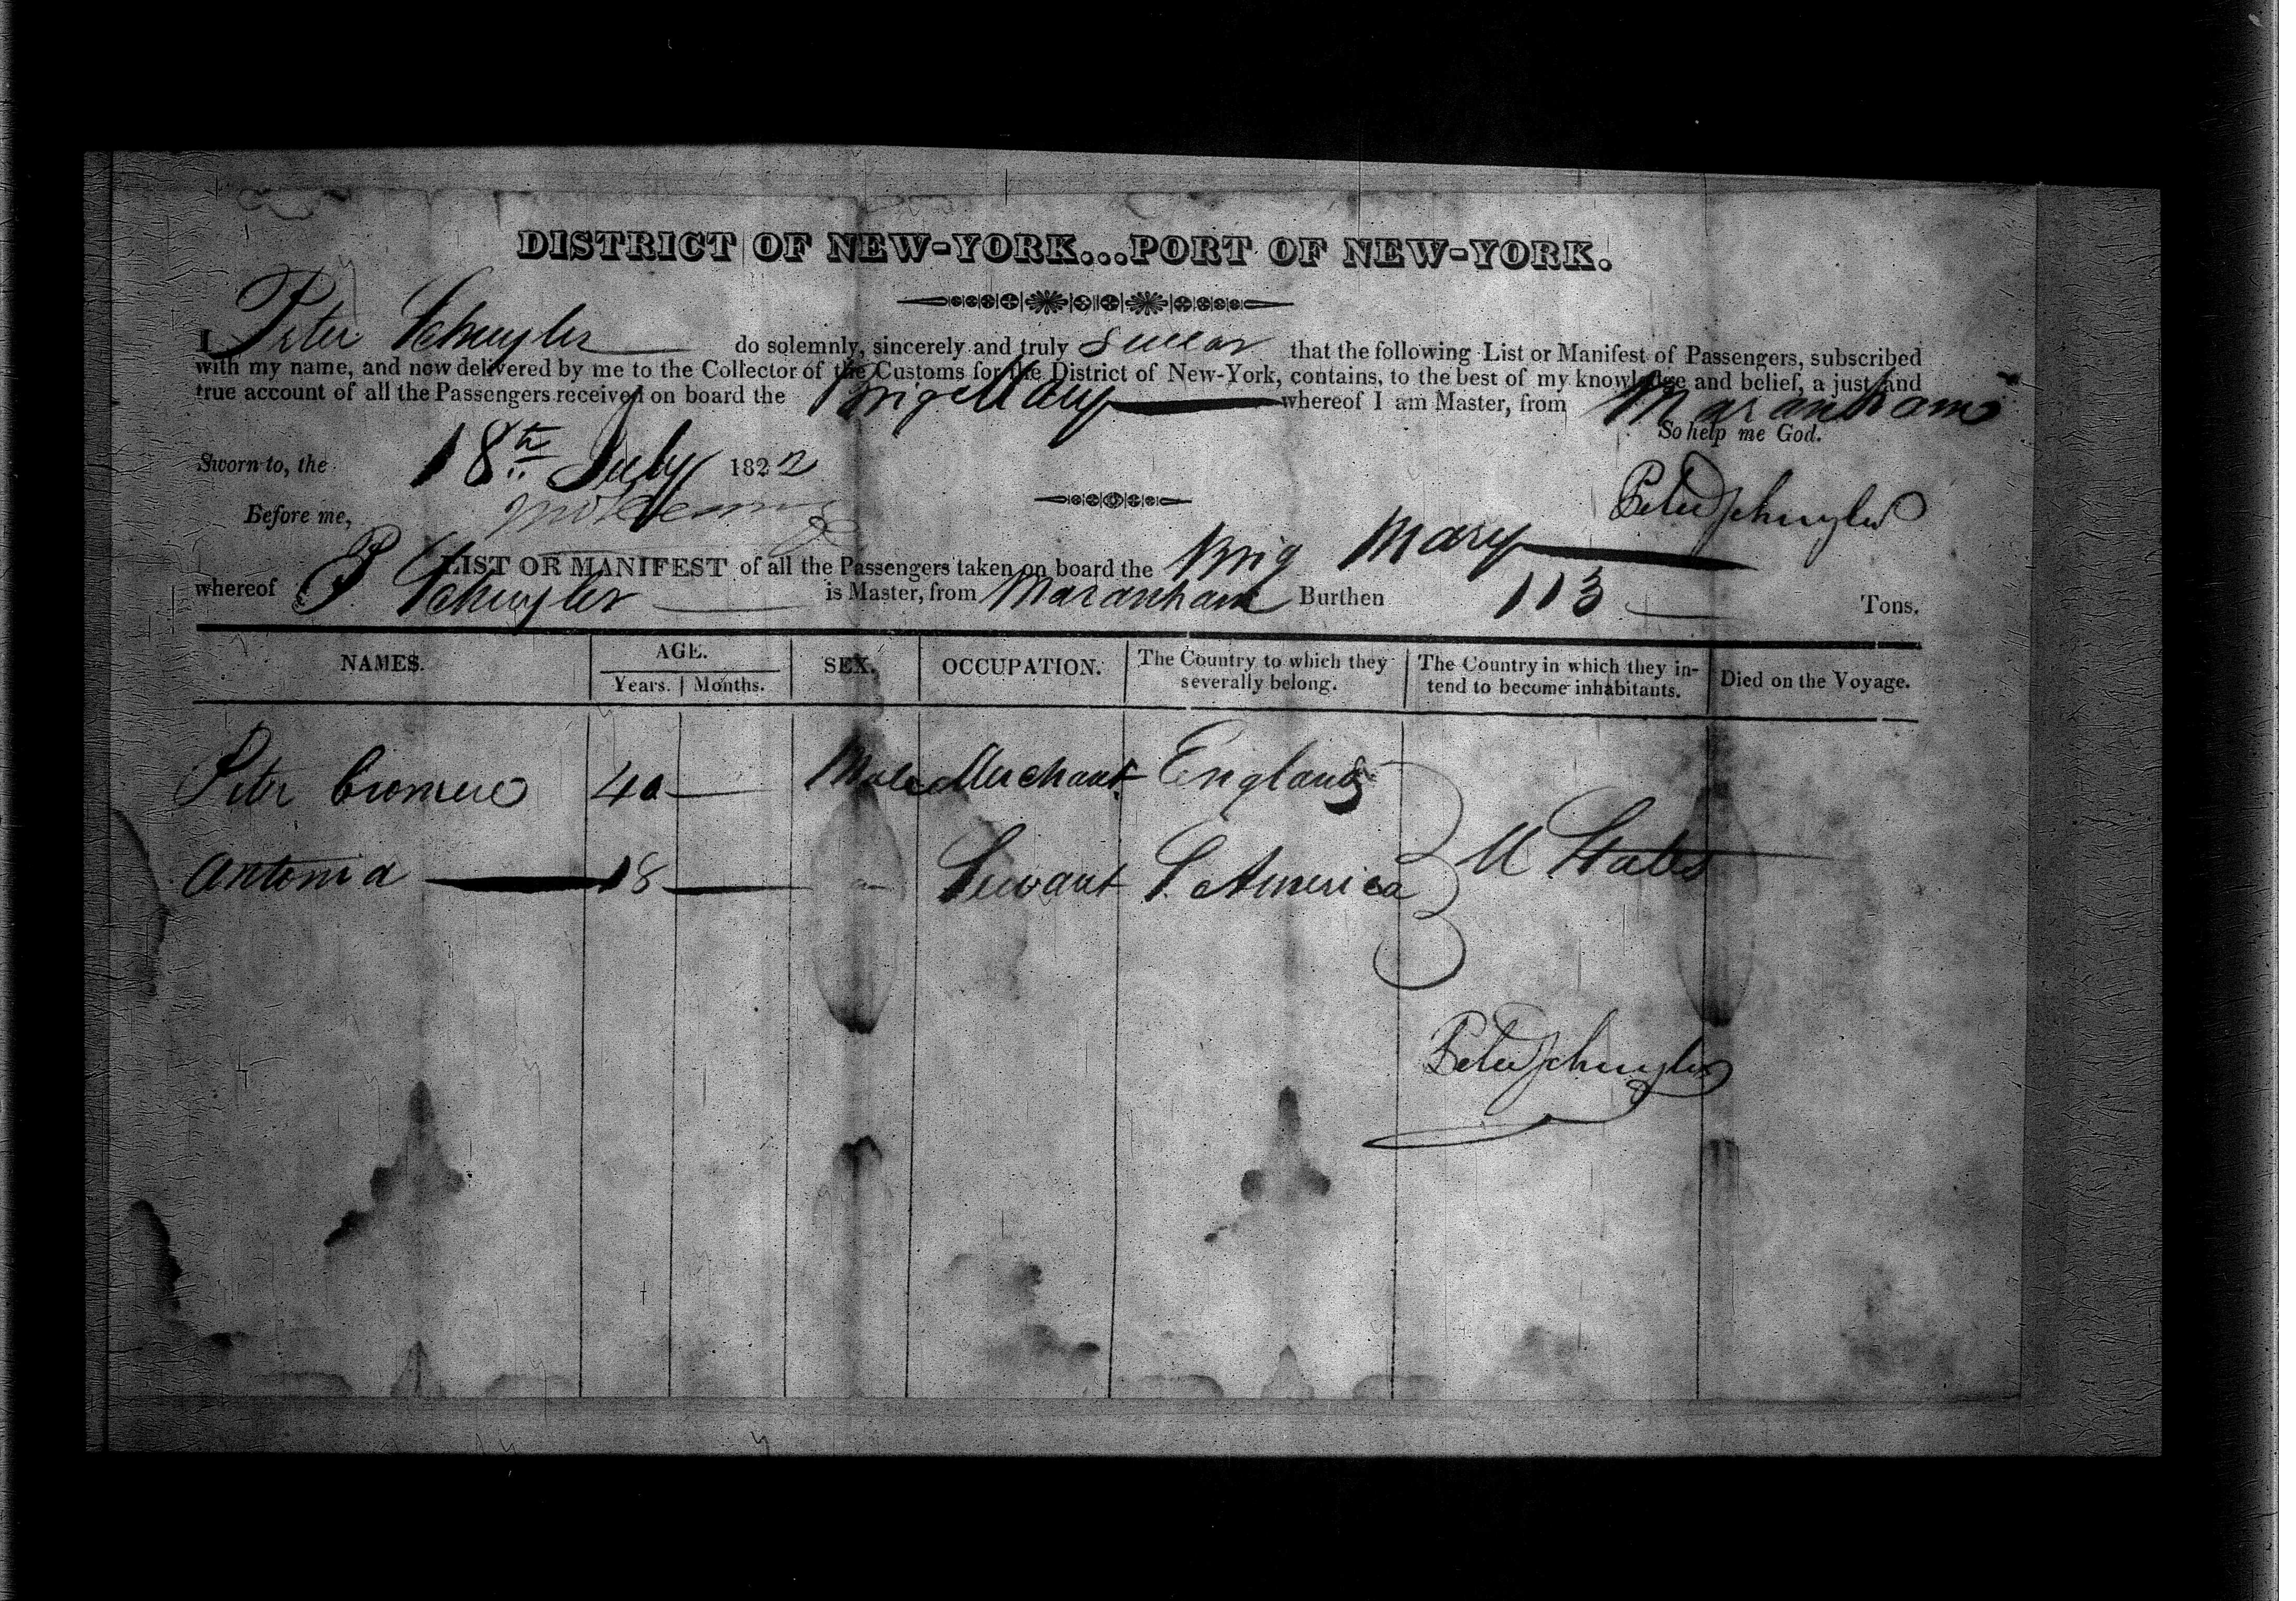 DISTRICT OF NEW-YORK...PORT OF NEW-YORK.
I Peter Schuyler do solemnly, sincerely and truly swear that the following List or Manifest of Passengers, subscribed
with my name, and now delivered by me to the Collector of the Customs for the District of New-York, contains, to the best of my knowledge and belief, a just and
true account of all the Passengers received on board the Brig Mary whereof I am Master, from Maranham
So help me God.
Sworn to, the 18th July 1822
Peter Schuyler
Before me,
LIST OR MANIFEST of all the Passengers taken on board the Brig Mary
whereof P Schuyler is Master, from Maranham Burthen 113 Tons.
NAMES. AGE. Years. Months. SEX. OCCUPATION. The Country to which they severally belong. The Country in which they intend to become inhabitants. Died on the Voyage.
Peter 40 Male Merchant England
Antonia 18 Servant S. America U States
Peter Schuyler